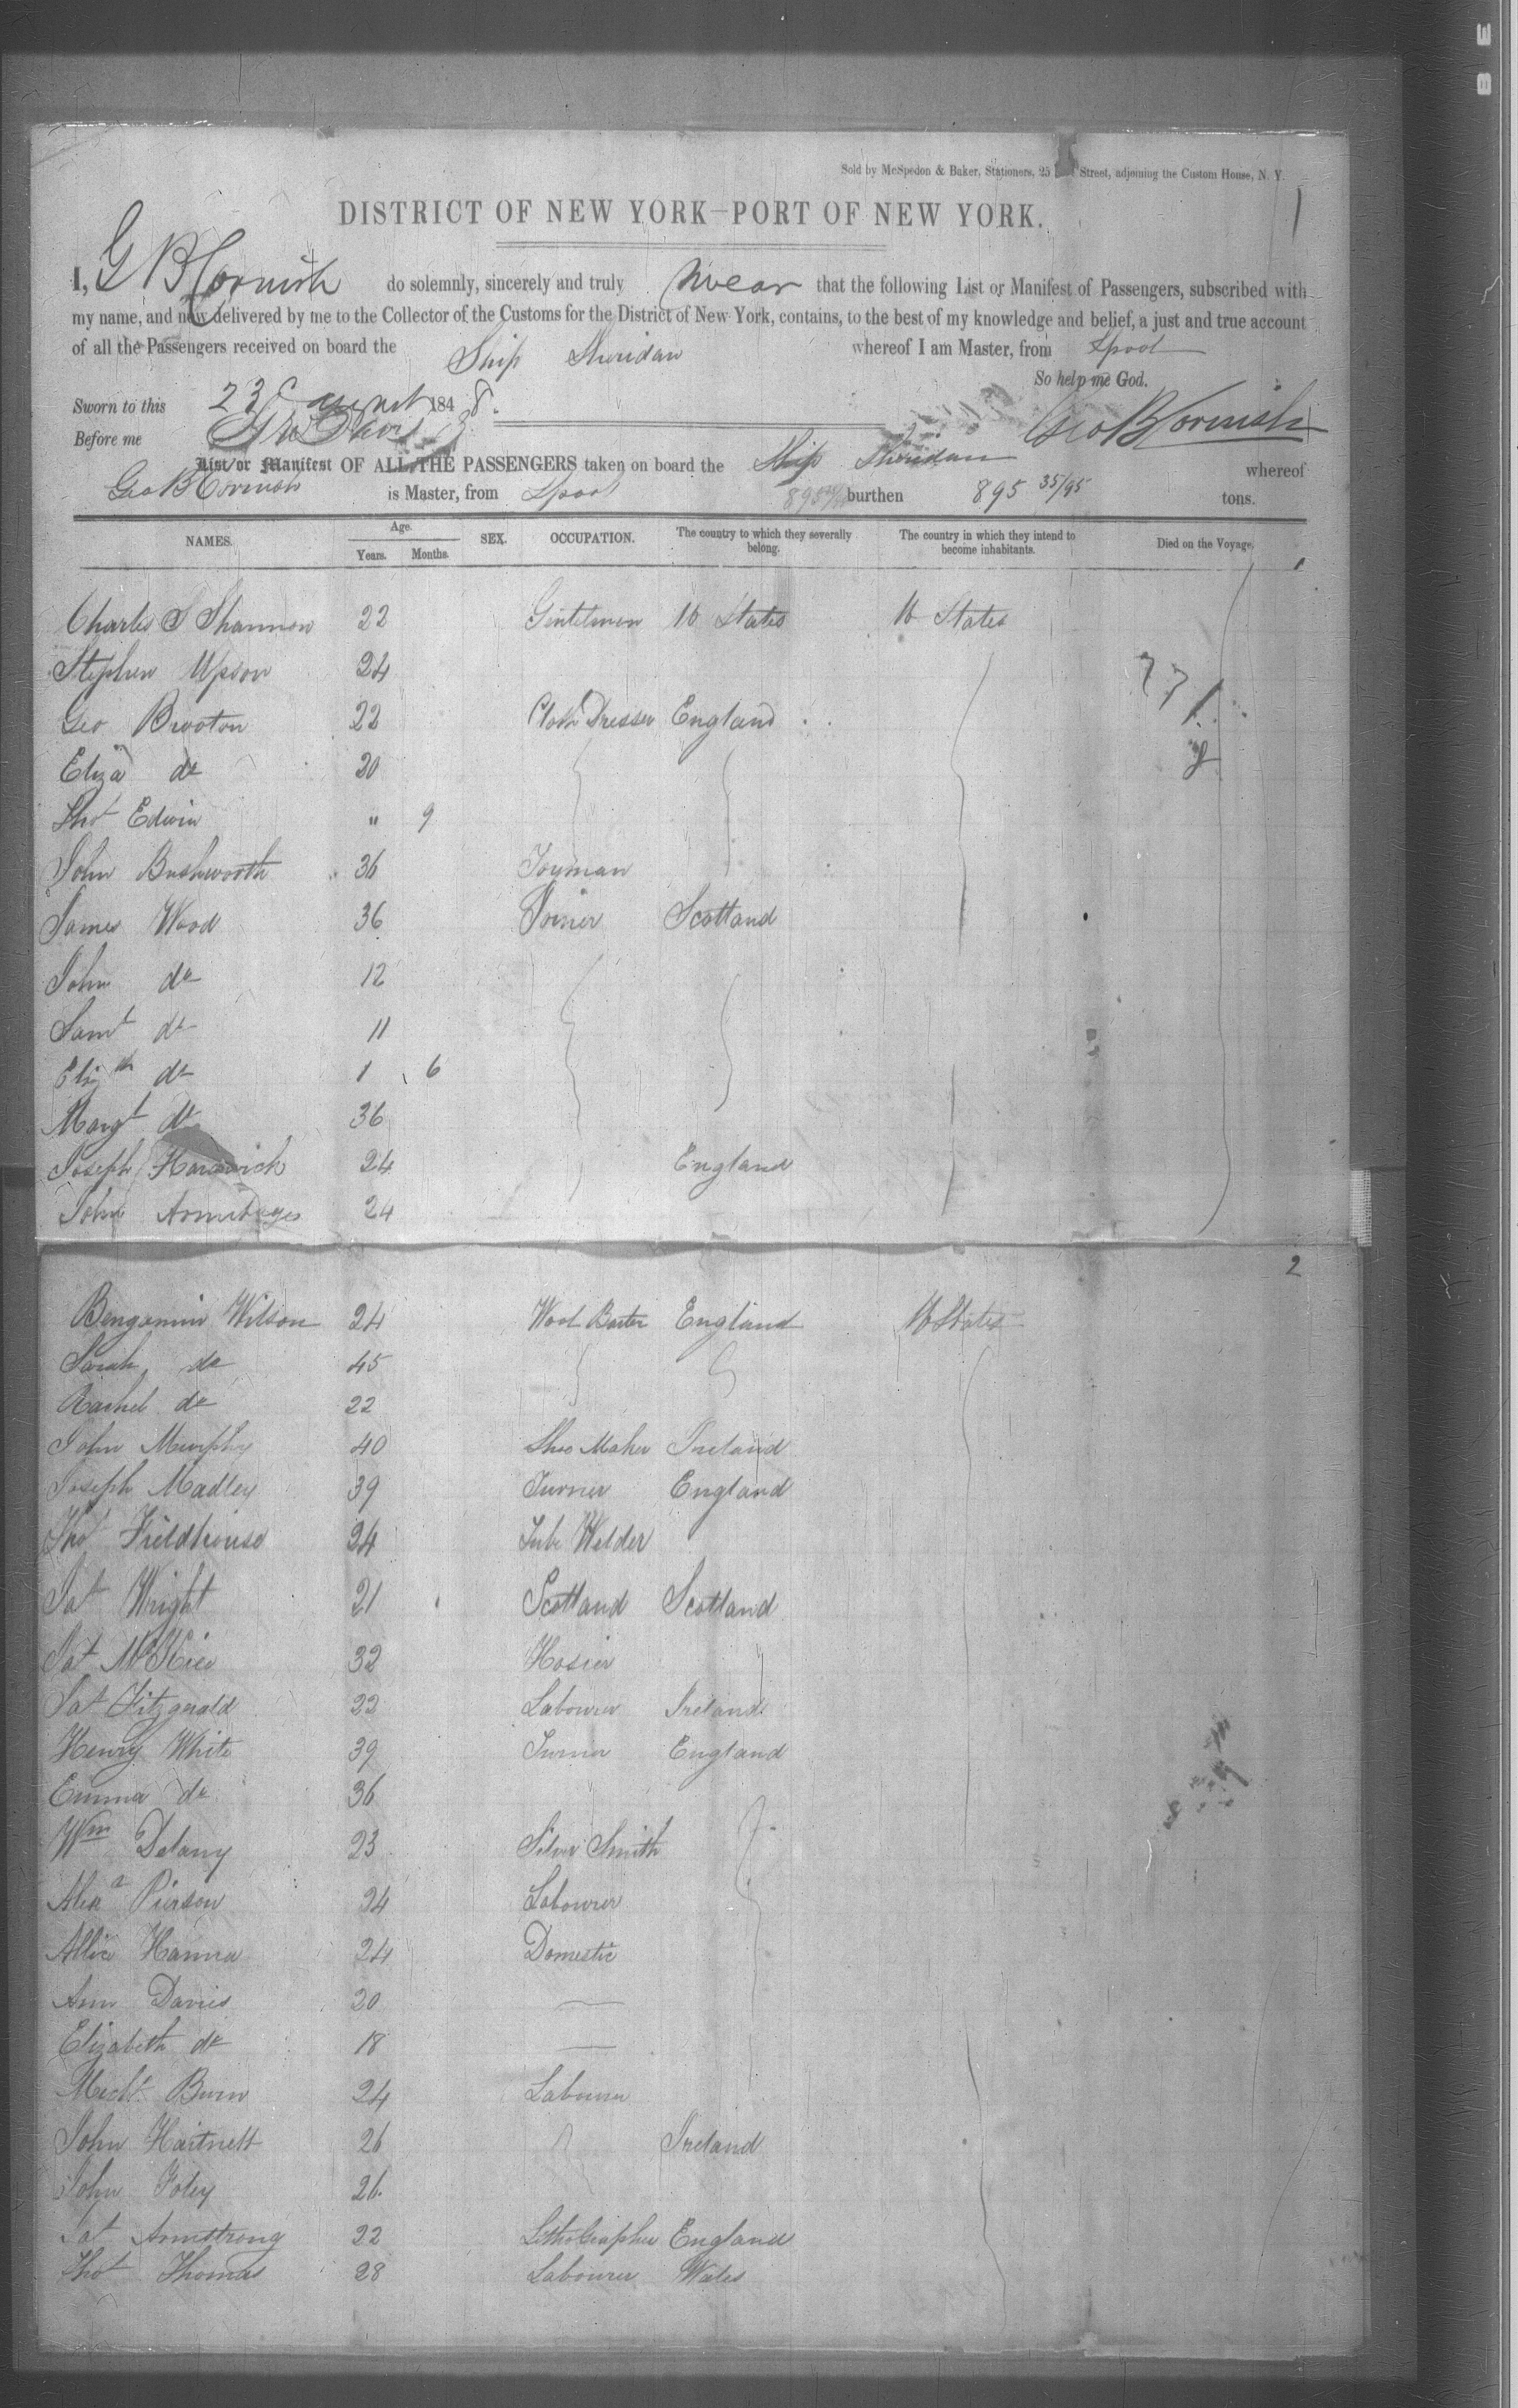 Sold by McSpedon & Baker, Stationers, 25 Street, adjoining the Custom House, N. Y.
1
DISTRICT OF NEW YORK—PORT OF NEW YORK.
I, G B Cornish do solemnly, sincerely and truly swear that the following List or Manifest of Passengers, subscribed with
my name, and now delivered by me to the Collector of the Customs for the District of New York, contains, to the best of my knowledge and belief, a just and true account
of all the Passengers received on board the Ship Sheridan whereof I am Master, from Lpool
So help me God.
Sworn to this 23 August 1848.
Before me Geo B Cornish
List or Manifest OF ALL THE PASSENGERS taken on board the Ship Sheridan whereof
Geo B Cornish is Master, from Lpool burthen 895 35/95 tons.
NAMES. Age. Years. Months. SEX. OCCUPATION. The country to which they severally belong. The country in which they intend to become inhabitants. Died on the Voyage.
Charles S Shannon 22 Gentelmen U States U States
Stephen Upson 24
Geo Brooton 22 Cloth Dresser England
Eliza do 20
Thos Edwin " 9
John Bushworth 36 Toyman
James Wood 36 Joiner Scotland
John do 12
Saml do 11
Elizth do 1 6
Margt do 36
Joseph 24 England
John Armitages 24
2
Bengamin Wilson 24 England U States
Sarah do 45
Rachel do 22
John Murphy 40 Shoe Maker Ireland
Joseph Madley 39 Turner England
Thos Fieldhouse 24 Tube Welder
Jas Wright 21 Scotland Scotland
Jas McKee 32 Hosier
Jas Fitzgerald 22 Labourer Ireland
Henry White 39 Turner England
Emma do 36
Wm Delany 23 Silver Smith
Alexr Pierson 24 Labourer
Allice Hanna 24 Domestic
Ann Davies 20 —
Elizabeth do 18 —
Michl Burn 24 Labourer
John Hartnett 26 Ireland
John Foley 26
Jas Armstrong 22 LithoGrapher England
Thos Thomas 28 Labourer Wales